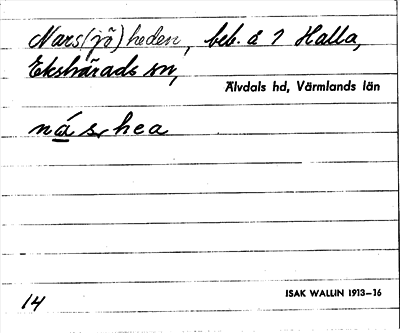 Nars(jö)heden, beb. å 7 Halla,
Ekshärads sn,
Älvdals hd, Värmlands län
nás hea
14
ISAK WALLIN 1913–16